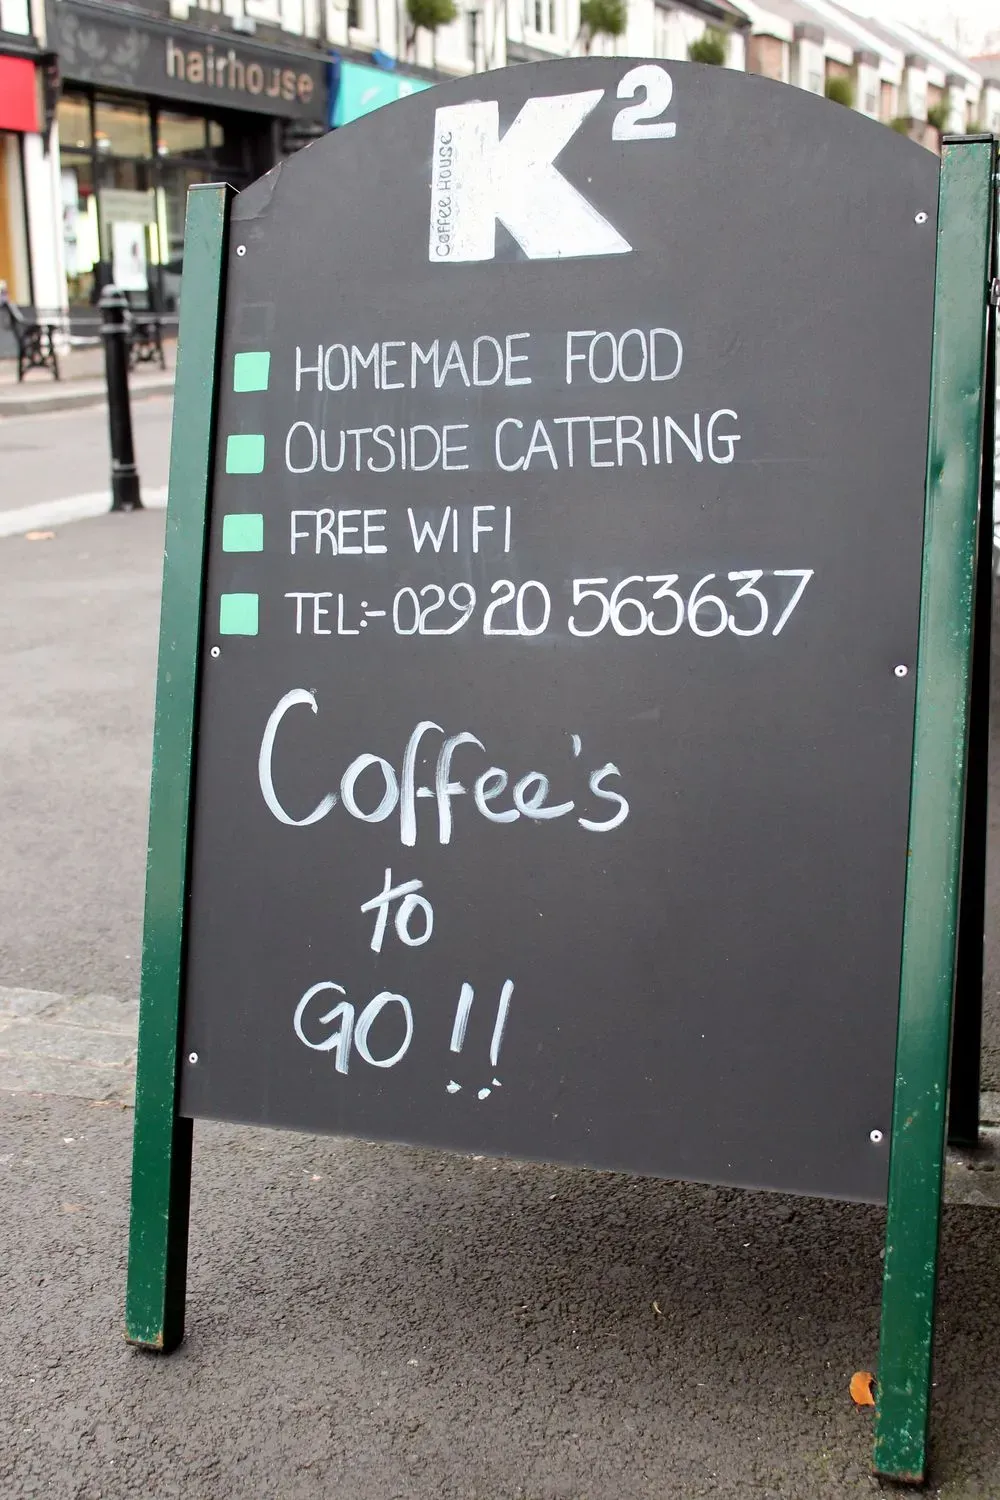 hairhouse
K²
Coffee House
HOMEMADE FOOD
OUTSIDE CATERING
FREE WIFI
TEL:- 02920 563637
Coffee's
to
GO!!